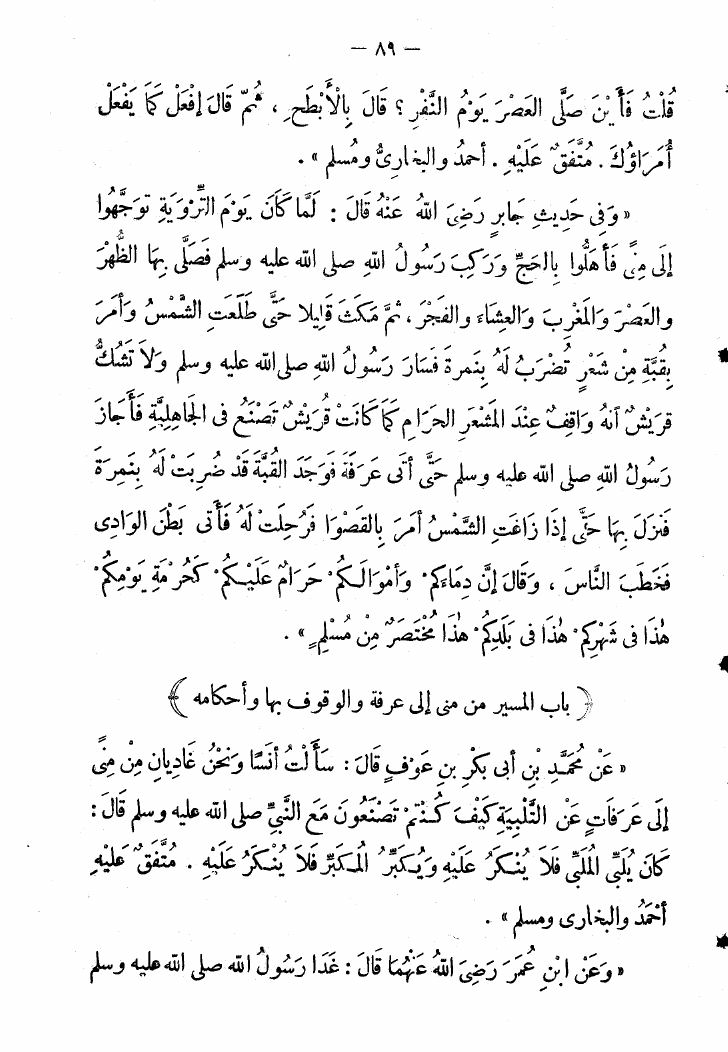 — ٨٩ —
قُلْتُ فَأَيْنَ صَلَّى العَصْرَ يَوْمُ النَّفْرِ ؟ قَالَ بِالْأَبْطَحِ ، ثُمَّ قَالَ إِفْعَلْ كَمَا يَفْعَلْ
أُمَرَاؤُكَ . مُتَّفَقٌ عَلَيْهِ . أحمدُ والبخارىُّ ومُسلم » .
« وَفِى حَدِيثِ جَابرٍ رَضِىَ اللهُ عَنْهُ قَالَ : لَمَّا كَانَ يَوْمَ التَّرْوِيَةِ توَجَّهُوا
إلَى مِنًى فَأَهَلُّوا بِالحَجِّ وَرَكِبَ رَسُولُ اللهِ صلى الله عليه وسلم فَصَلَّى بِهَا الظُّهْرَ
والعَصْرَ وَالمَغْرِبَ وَالعِشَاءَ والفَجْرَ ، ثمَّ مَكَثَ قَلِيلا حَتَّى طَلَعَتِ الشَّمْسُ وَأمَرَ
بِقُبَّةٍ مِنْ شَعْرٍ تُضْرَبُ لَهُ بِنَمرةَ فَسَارَ رَسُولُ اللهِ صلى الله عليه وسلم وَلاَ تَشُكُّ
قرَيْشٌ أنهُ وَاقِفٌ عِنْدَ المَشْعَرِ الحَرَامِ كَمَا كَانَتْ قُرَيْشٌ تَصْنَعُ فى الجَاهِليَّةِ فَأَجَازَ
رَسولُ اللهِ صلى الله عليه وسلم حَتَّى أتَى عَرَفَةَ فَوَجَدَ القُبَّةَ قَدْ ضُرِبَتْ لَهُ بِنَمِرَةَ
فَنزَلَ بِهَا حَتَّى إذَا زَاغَتِ الشَّمْسُ أمَرَ بِالقَصْوَا فَرُحِلَتْ لَهُ فَأتَى بَطْنَ الوَادِى
فَخَطَبَ النَّاسَ ، وَقَالَ إنَّ دِمَاءَكمْ وَأمْوَالَكُمْ حَرَامٌ عَلَيْكُمْ كَحُرْمَةِ يَوْمِكُمْ
هٰذَا فى شَهْرِكمْ هٰذَا فى بَلَدِكُمْ هٰذَا مُخْتَصَرٌ مِنْ مُسْلِمٍ » .
﴿ باب المسير من منى إلى عرفة والوقوف بها وأحكامه ﴾
« عَنْ مُحَمَّدِ بْنِ أبى بَكْرِ بنِ عَوفٍ قَالَ : سَأَلْتُ أنَسًا وَنَحْنُ غَادِيانِ مِنْ مِنًى
إلَى عَرَفَاتٍ عَنْ التَّلْبِيَةِ كَيْفَ كُنْتمْ تَصْنَعُونَ مَعَ النَّبِىِّ صلى الله عليه وسلم قَالَ :
كَانَ يُلَبِّى المُلَبِّى فَلاَ يُنْكَرُ عَلَيْهِ وَيُكَبِّرُ المُكَبِّرُ فَلاَ يُنْكَرُ عَلَيْهِ . مُتَّفَقٌ عَليْهِ
أحْمَدُ والبخارى ومسلم » .
« وَعَنِ ابْنِ عُمَرَ رَضِىَ اللهُ عَنْهُمَا قَالَ : غَدَا رَسُولُ الله صلى الله عليه وسلم